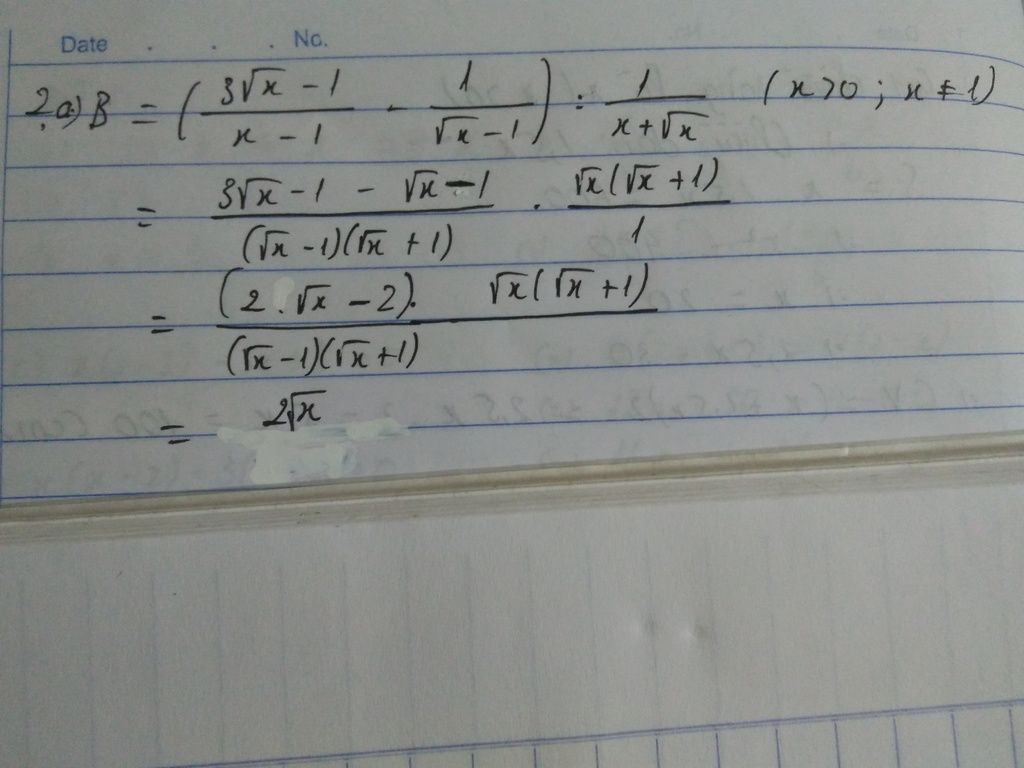 Date . . . No.
2.a) B = ( (3√x - 1)/(x - 1) - 1/(√x - 1) ) : 1/(x + √x) (x > 0 ; x ≠ 1)
= (3√x - 1 - √x - 1)/((√x - 1)(√x + 1)) . √x(√x + 1)/1
= (2.√x - 2). √x(√x + 1)/((√x - 1)(√x + 1))
= 2√x